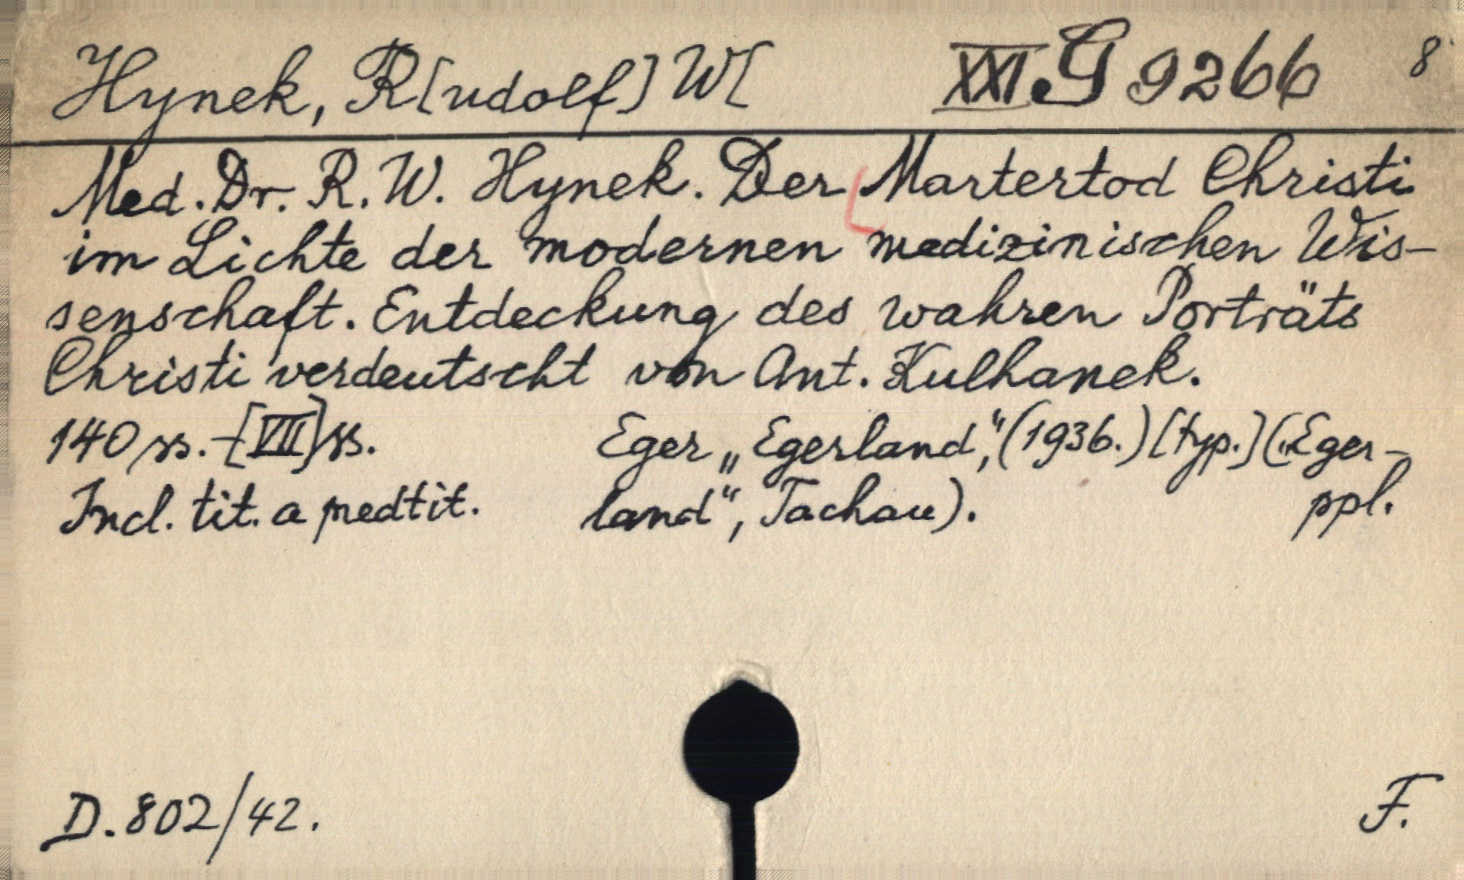 Hynek, R[udolf] W[ XXI G 9266 8
Med. Dr. R. W. Hynek. Der Martertod Christi
im Lichte der modernen medizinischen Wis-
senschaft. Entdeckung des wahren Porträts
Christi verdeutscht von Ant. Kulhanek.
140 ss.-[VII] ss. Eger „Egerland,“ (1936.) [typ.] („Eger-
Incl. tit. a předtit. land“, Tachau). ppl.
D. 802/42. F.